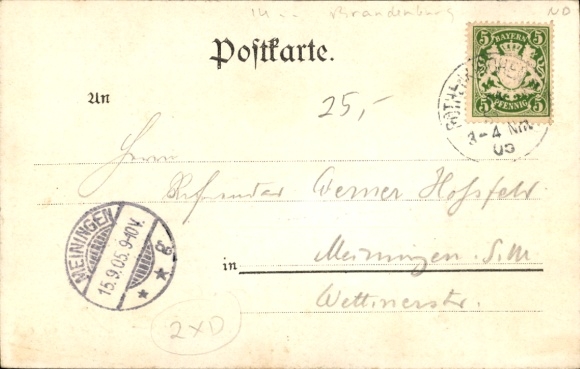 Brandenburg NO
Postkarte.
5 BAYERN 5
5 PFENNIG 5
3-4 Nm.
05
An
25,-
Herrn
Referendar Werner Hossfeld
in Meiningen S.M
Wettinerstr.
MEININGEN
15.9.05. 9-10V.
2XD